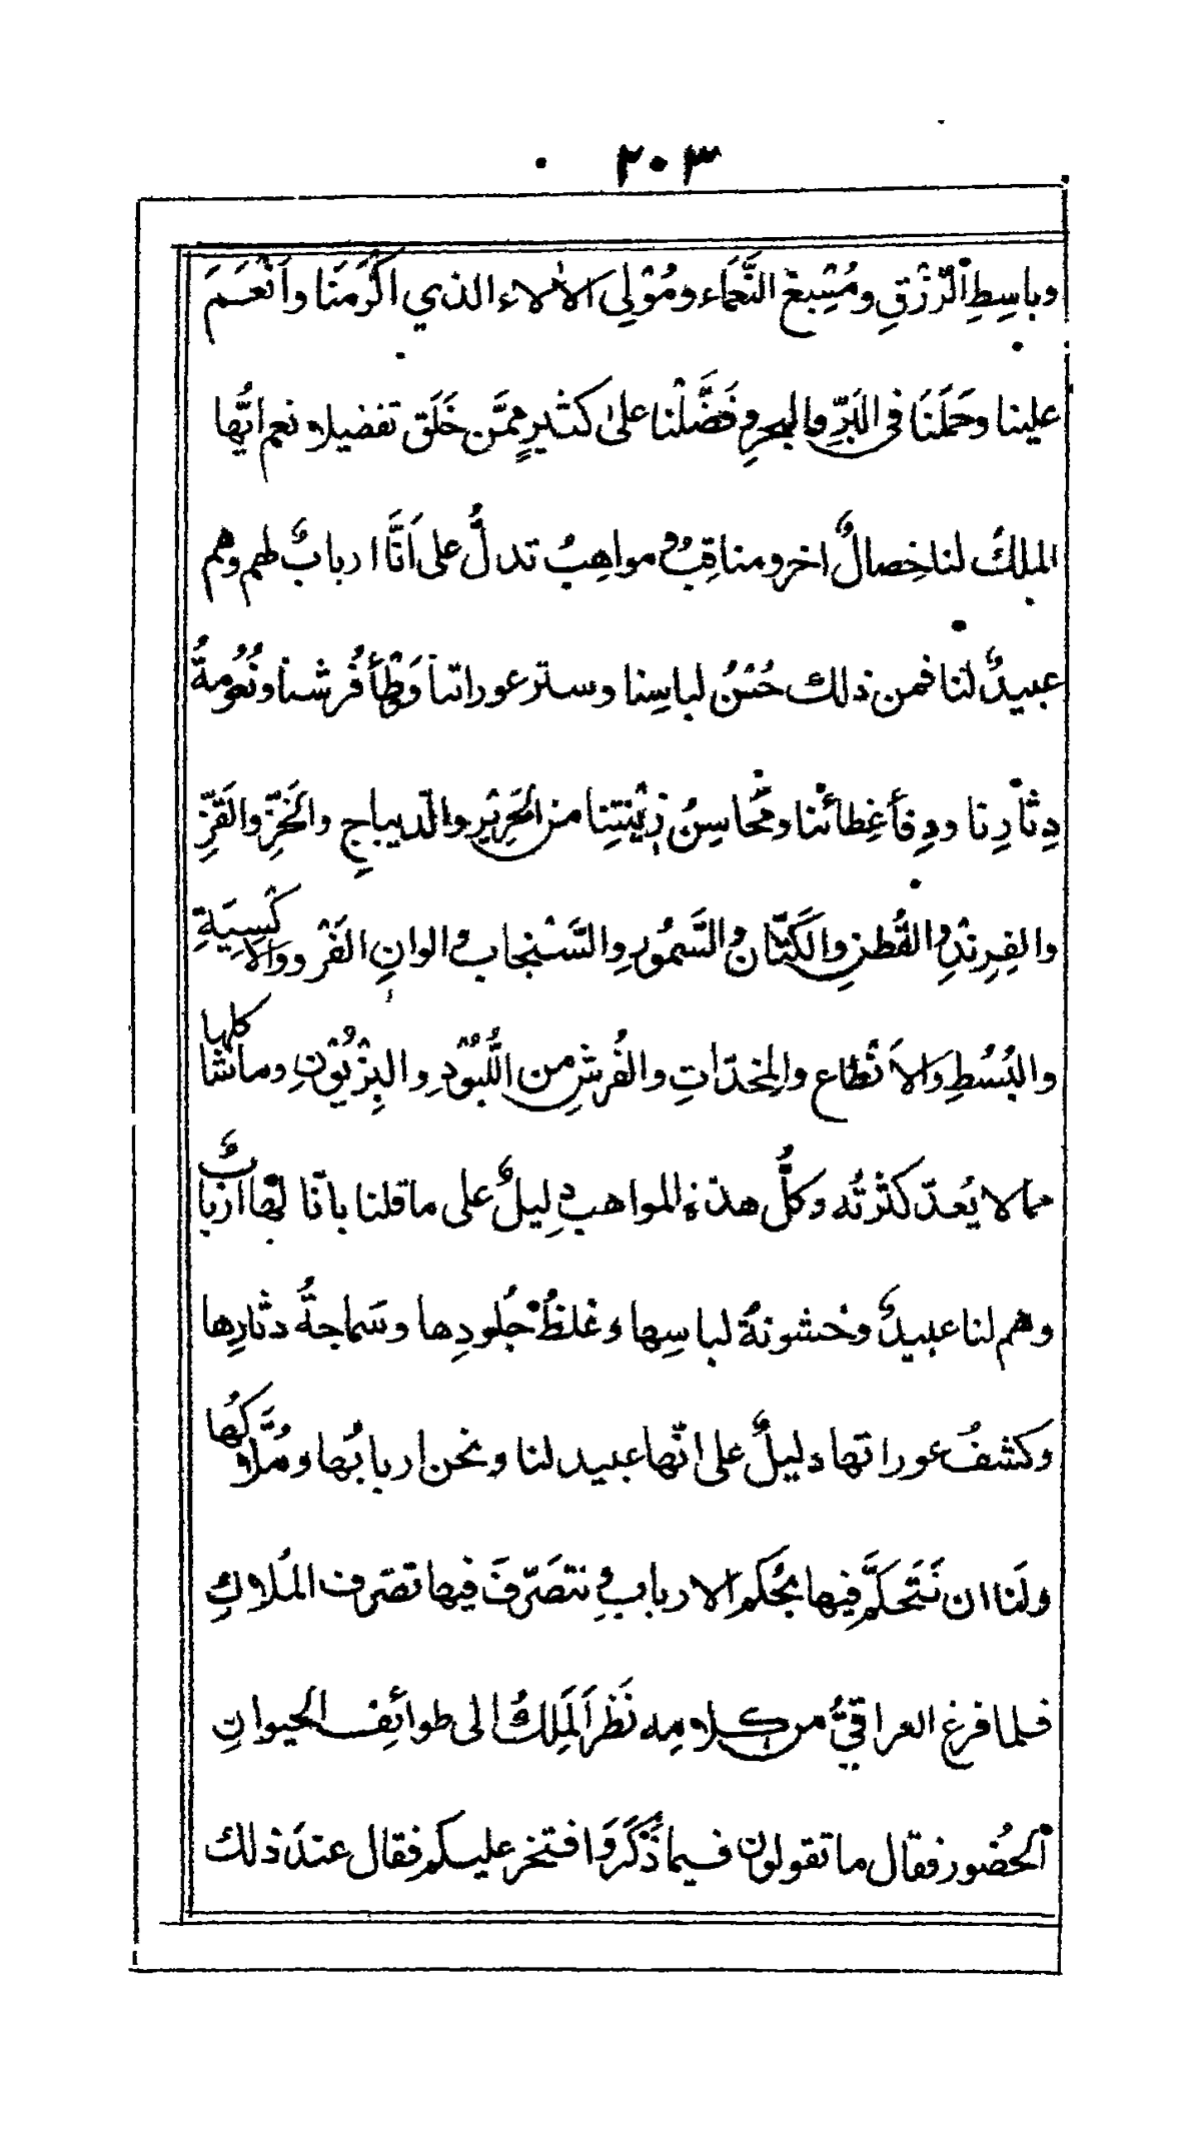 ٢٠٣
وباسِطِ الرِّزْقِ ومُسْبغ النَّعْمَاء ومُوْلِي الالاء الذي اكْرَمَنَا واَنْعَمَ
علينا وحَمَلَنَا في البَرِّ والبحرِ وفَضَّلْنا علىٰ كثيرٍ ممَّن خَلَق تفضيلا نعم ايّها
الملكُ لنا خِصالٌ اخر ومناقِبُ ومواهِبُ تدلُّ على اَنَّا اربابٌ لهم وهم
عبيدٌ لنا فمن ذلك حُسْنُ لباسِنا وستر عوراتنا وَطْأُ فُرشنا ونُعُومةُ
دِثَارِنا ودِفأ غِطائنا ومَحَاسِنُ زِيْنَتِنا من الحَرِيْرِ والدّيباجِ والخَزِّ والقَزِّ
والفِرِنْدِ والقُطنِ والكَتَّانِ والسَّمُورِ والسَّنْجاب والوانِ الفَرْو والاكسِيَةِ
والبُسُطِ والاَنْطَاع والمخدّاتِ والفُرشِ من اللُّبُوْدِ والبِزْيُوْنِ وماشاكلها
مما لا يُعدّ كثْرتُه وكلُّ هذه المواهب دِليلٌ على ما قلنا بانّا لها اَرْبابٌ
وهم لنا عبيدٌ وخشونةُ لباسِها وغلظُ جُلودِها وسَماجةُ دثارِها
وكشفُ عوراتها دليلٌ على انّها عبيد لنا ونحن اربابُها ومُلَّاكُها
ولَنا ان نَتَحكَّم فِيها بحُكم الارباب ونتصَرّفَ فيها تصَرف المُلاكِ
فلما فرغ العراقيُّ من كلامِه نَظَرَ المَلِكُ الى طوائِف الحيوانِ
الحُضُور فقال ما تقولون فيما ذَكَرَ وَافتخر عليكم فقال عندَ ذلك